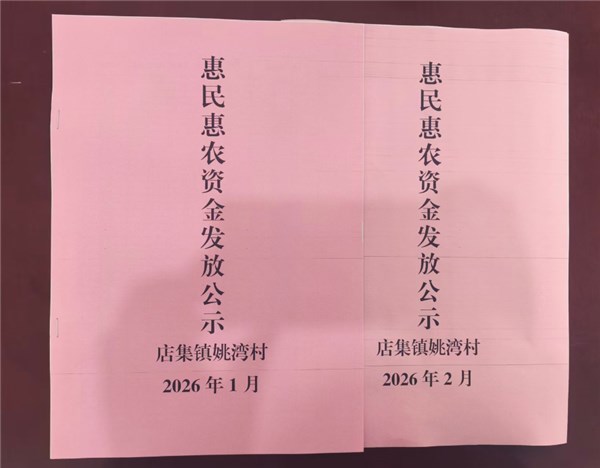 惠民惠农资金发放公示
店集镇姚湾村
2026年1月
惠民惠农资金发放公示
店集镇姚湾村
2026年2月